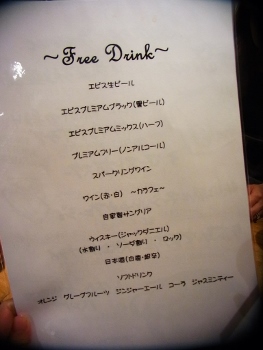 ~Free Drink~
エビス生ビール
エビスプレミアムブラック(黒ビール)
エビスプレミアムミックス(ハーフ)
プレミアムフリー(ノンアルコール)
スパークリングワイン
ワイン(赤・白) ~カラフェ~
自家製サングリア
ウィスキー(ジャックダニエル)
(水割り ・ ソーダ割り ・ ロック)
日本酒(白鹿・
ソフトドリンク
オレンジ グレープフルーツ ジンジャーエール コーラ ジャスミンティー